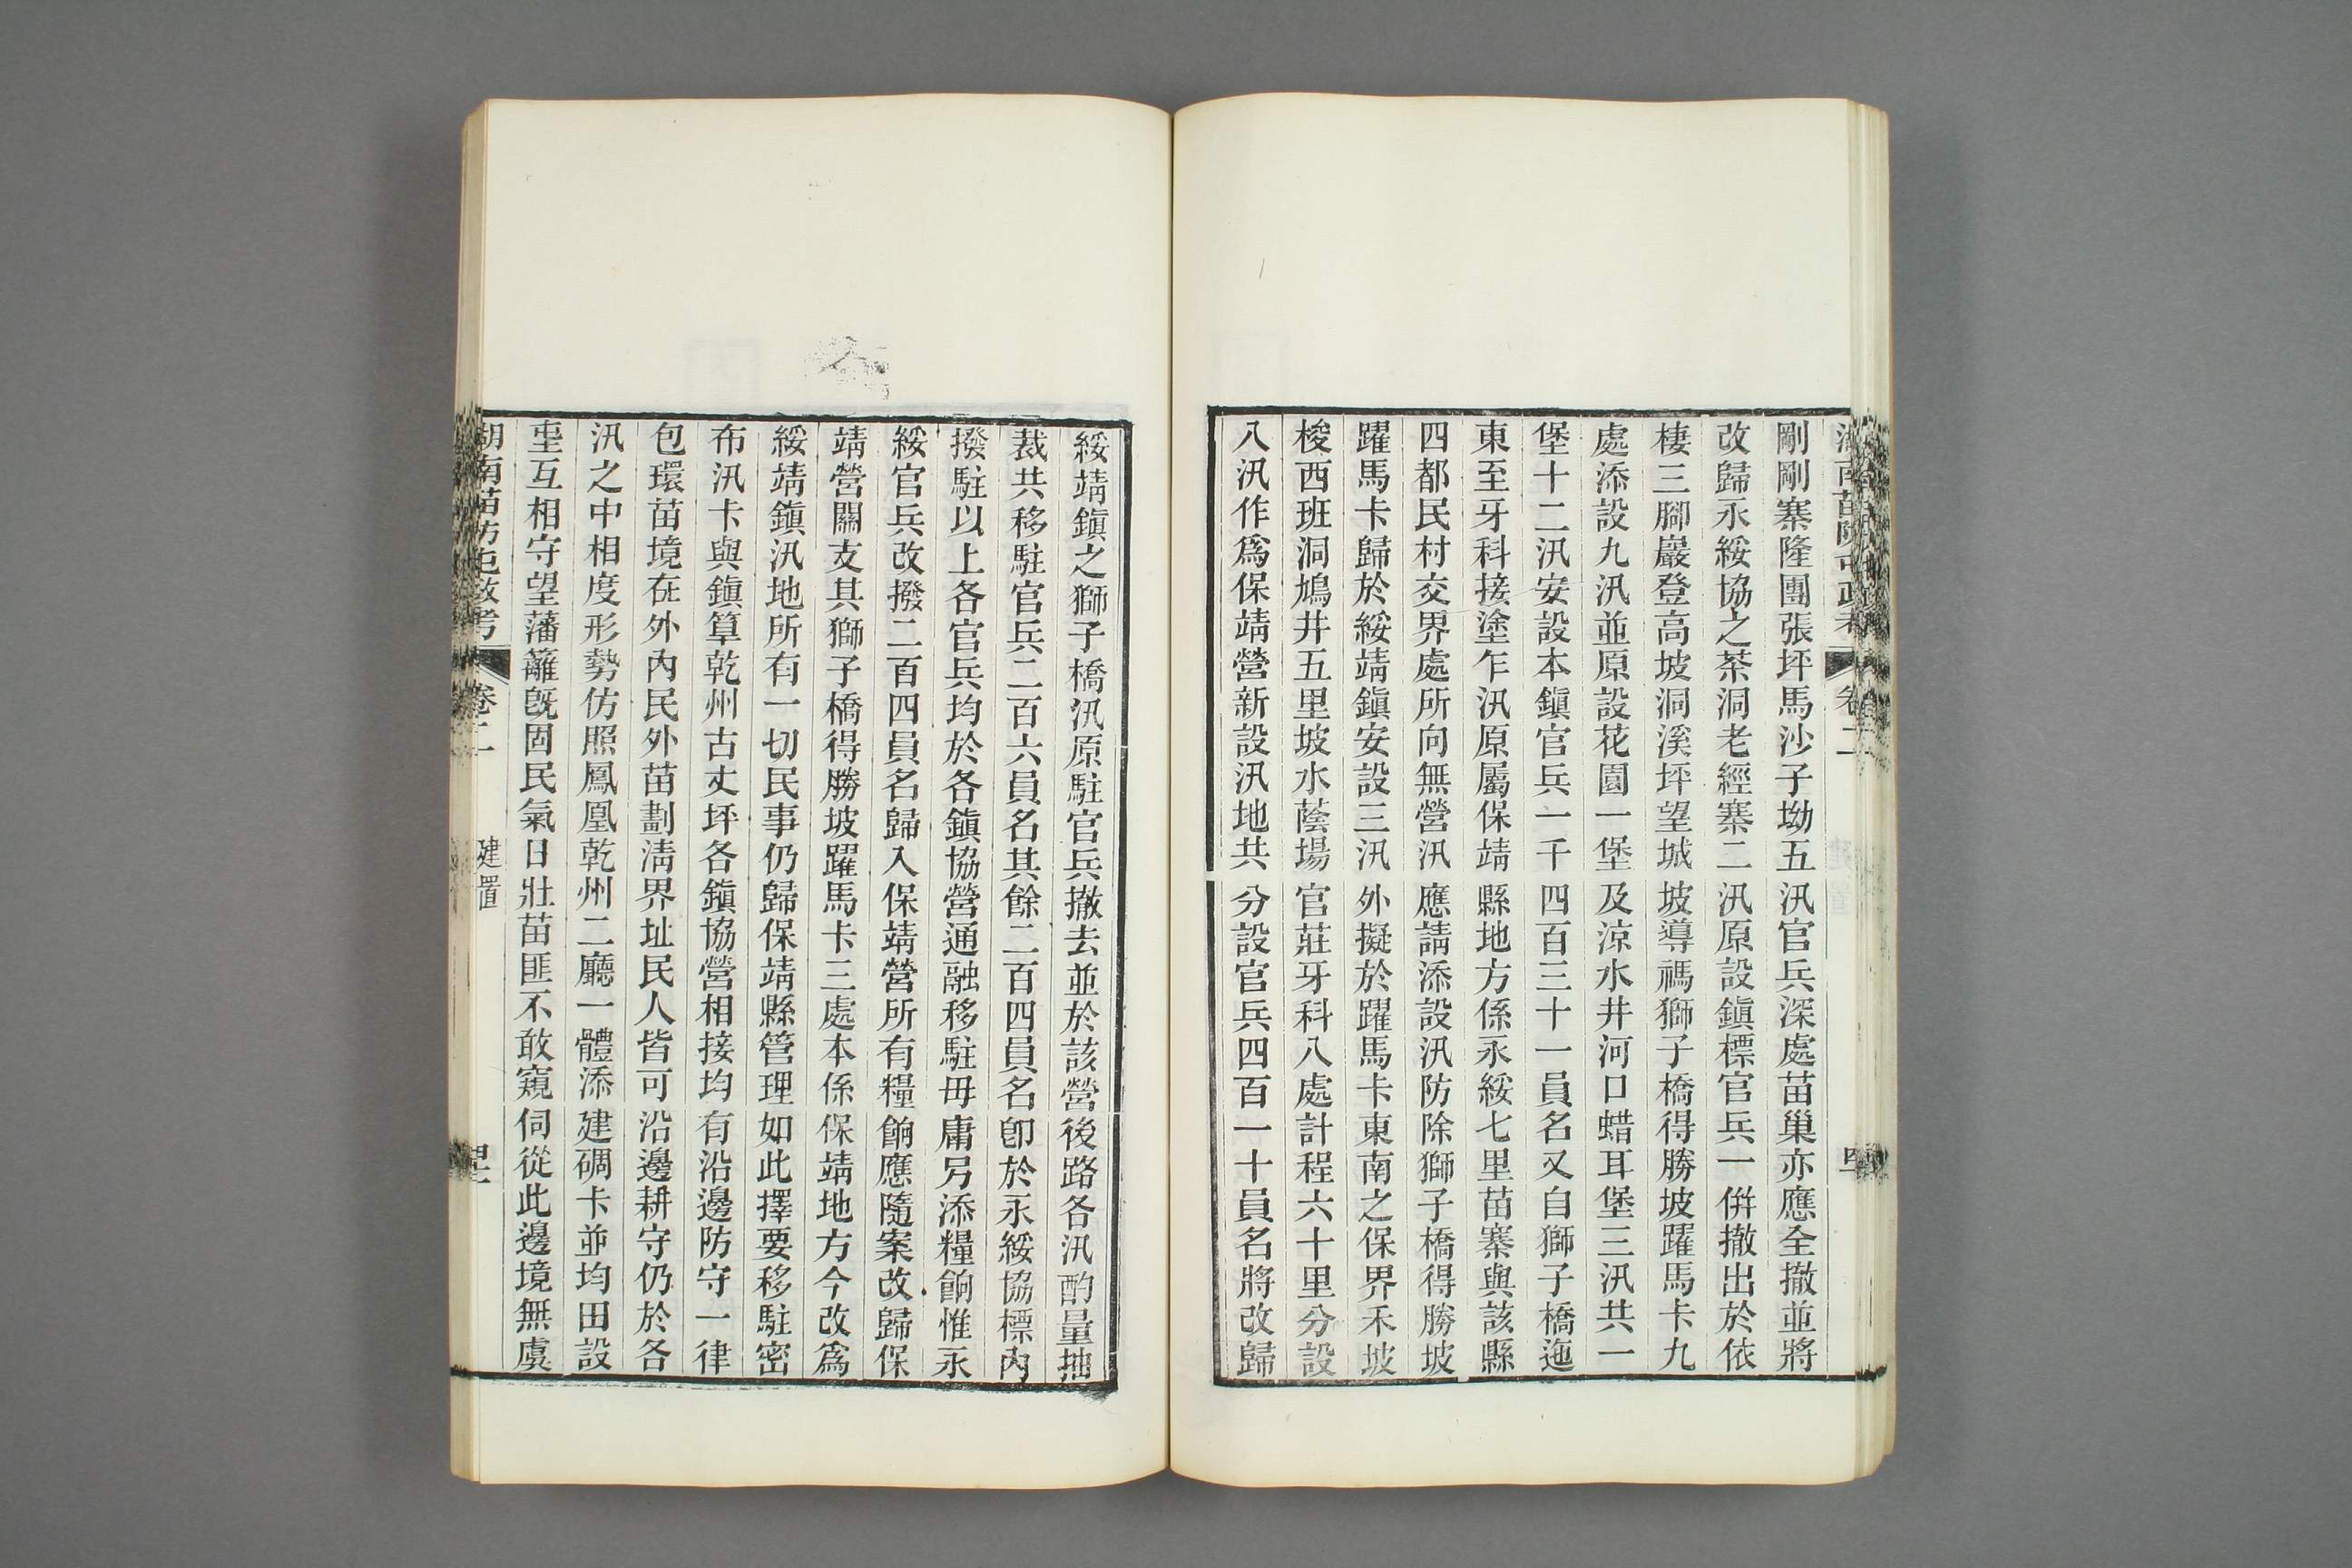 剛剛寨隆團張坪馬沙子坳五汛官兵深處苗巢亦應全撤並將
改歸永綏協之茶洞老經寨二汛原設鎭標官兵一併撤出於依
棲三腳巖登高坡洞溪坪望城坡導禡獅子橋得勝坡躍馬卡九
處添設九汛並原設花園一堡及涼水井河口蜡耳堡三汛共一
堡十二汛安設本鎭官兵一千四百三十一員名又自獅子橋迤
東至牙科接塗乍汛原屬保靖縣地方係永綏七里苗寨與該縣
四都民村交界處所向無營汛應請添設汛防除獅子橋得勝坡
躍馬卡歸於綏靖鎭安設三汛外擬於躍馬卡東南之保界禾坡
梭西班洞鳩井五里坡水蔭場官莊牙科八處計程六十里分設
八汛作爲保靖營新設汛地共分設官兵四百一十員名將改歸
綏靖鎭之獅子橋汛原駐官兵撤去並於該營後路各汛酌量抽
裁共移駐官兵二百六員名其餘二百四員名卽於永綏協標內
撥駐以上各官兵均於各鎭協營通融移駐毋庸另添糧餉惟永
綏官兵改撥二百四員名歸入保靖營所有糧餉應隨案改歸保
靖營關支其獅子橋得勝坡躍馬卡三處本係保靖地方今改爲
綏靖鎭汛地所有一切民事仍歸保靖縣管理如此擇要移駐密
布汛卡與鎭筸乾州古丈坪各鎭協營相接均有沿邊防守一律
包環苗境在外內民外苗劃清界址民人皆可沿邊耕守仍於各
汛之中相度形勢仿照鳳凰乾州二廳一體添建碉卡並均田設
屯互相守望藩籬旣固民氣日壯苗匪不敢窺伺從此邊境無虞
湖南苗防屯政考
卷二
建置